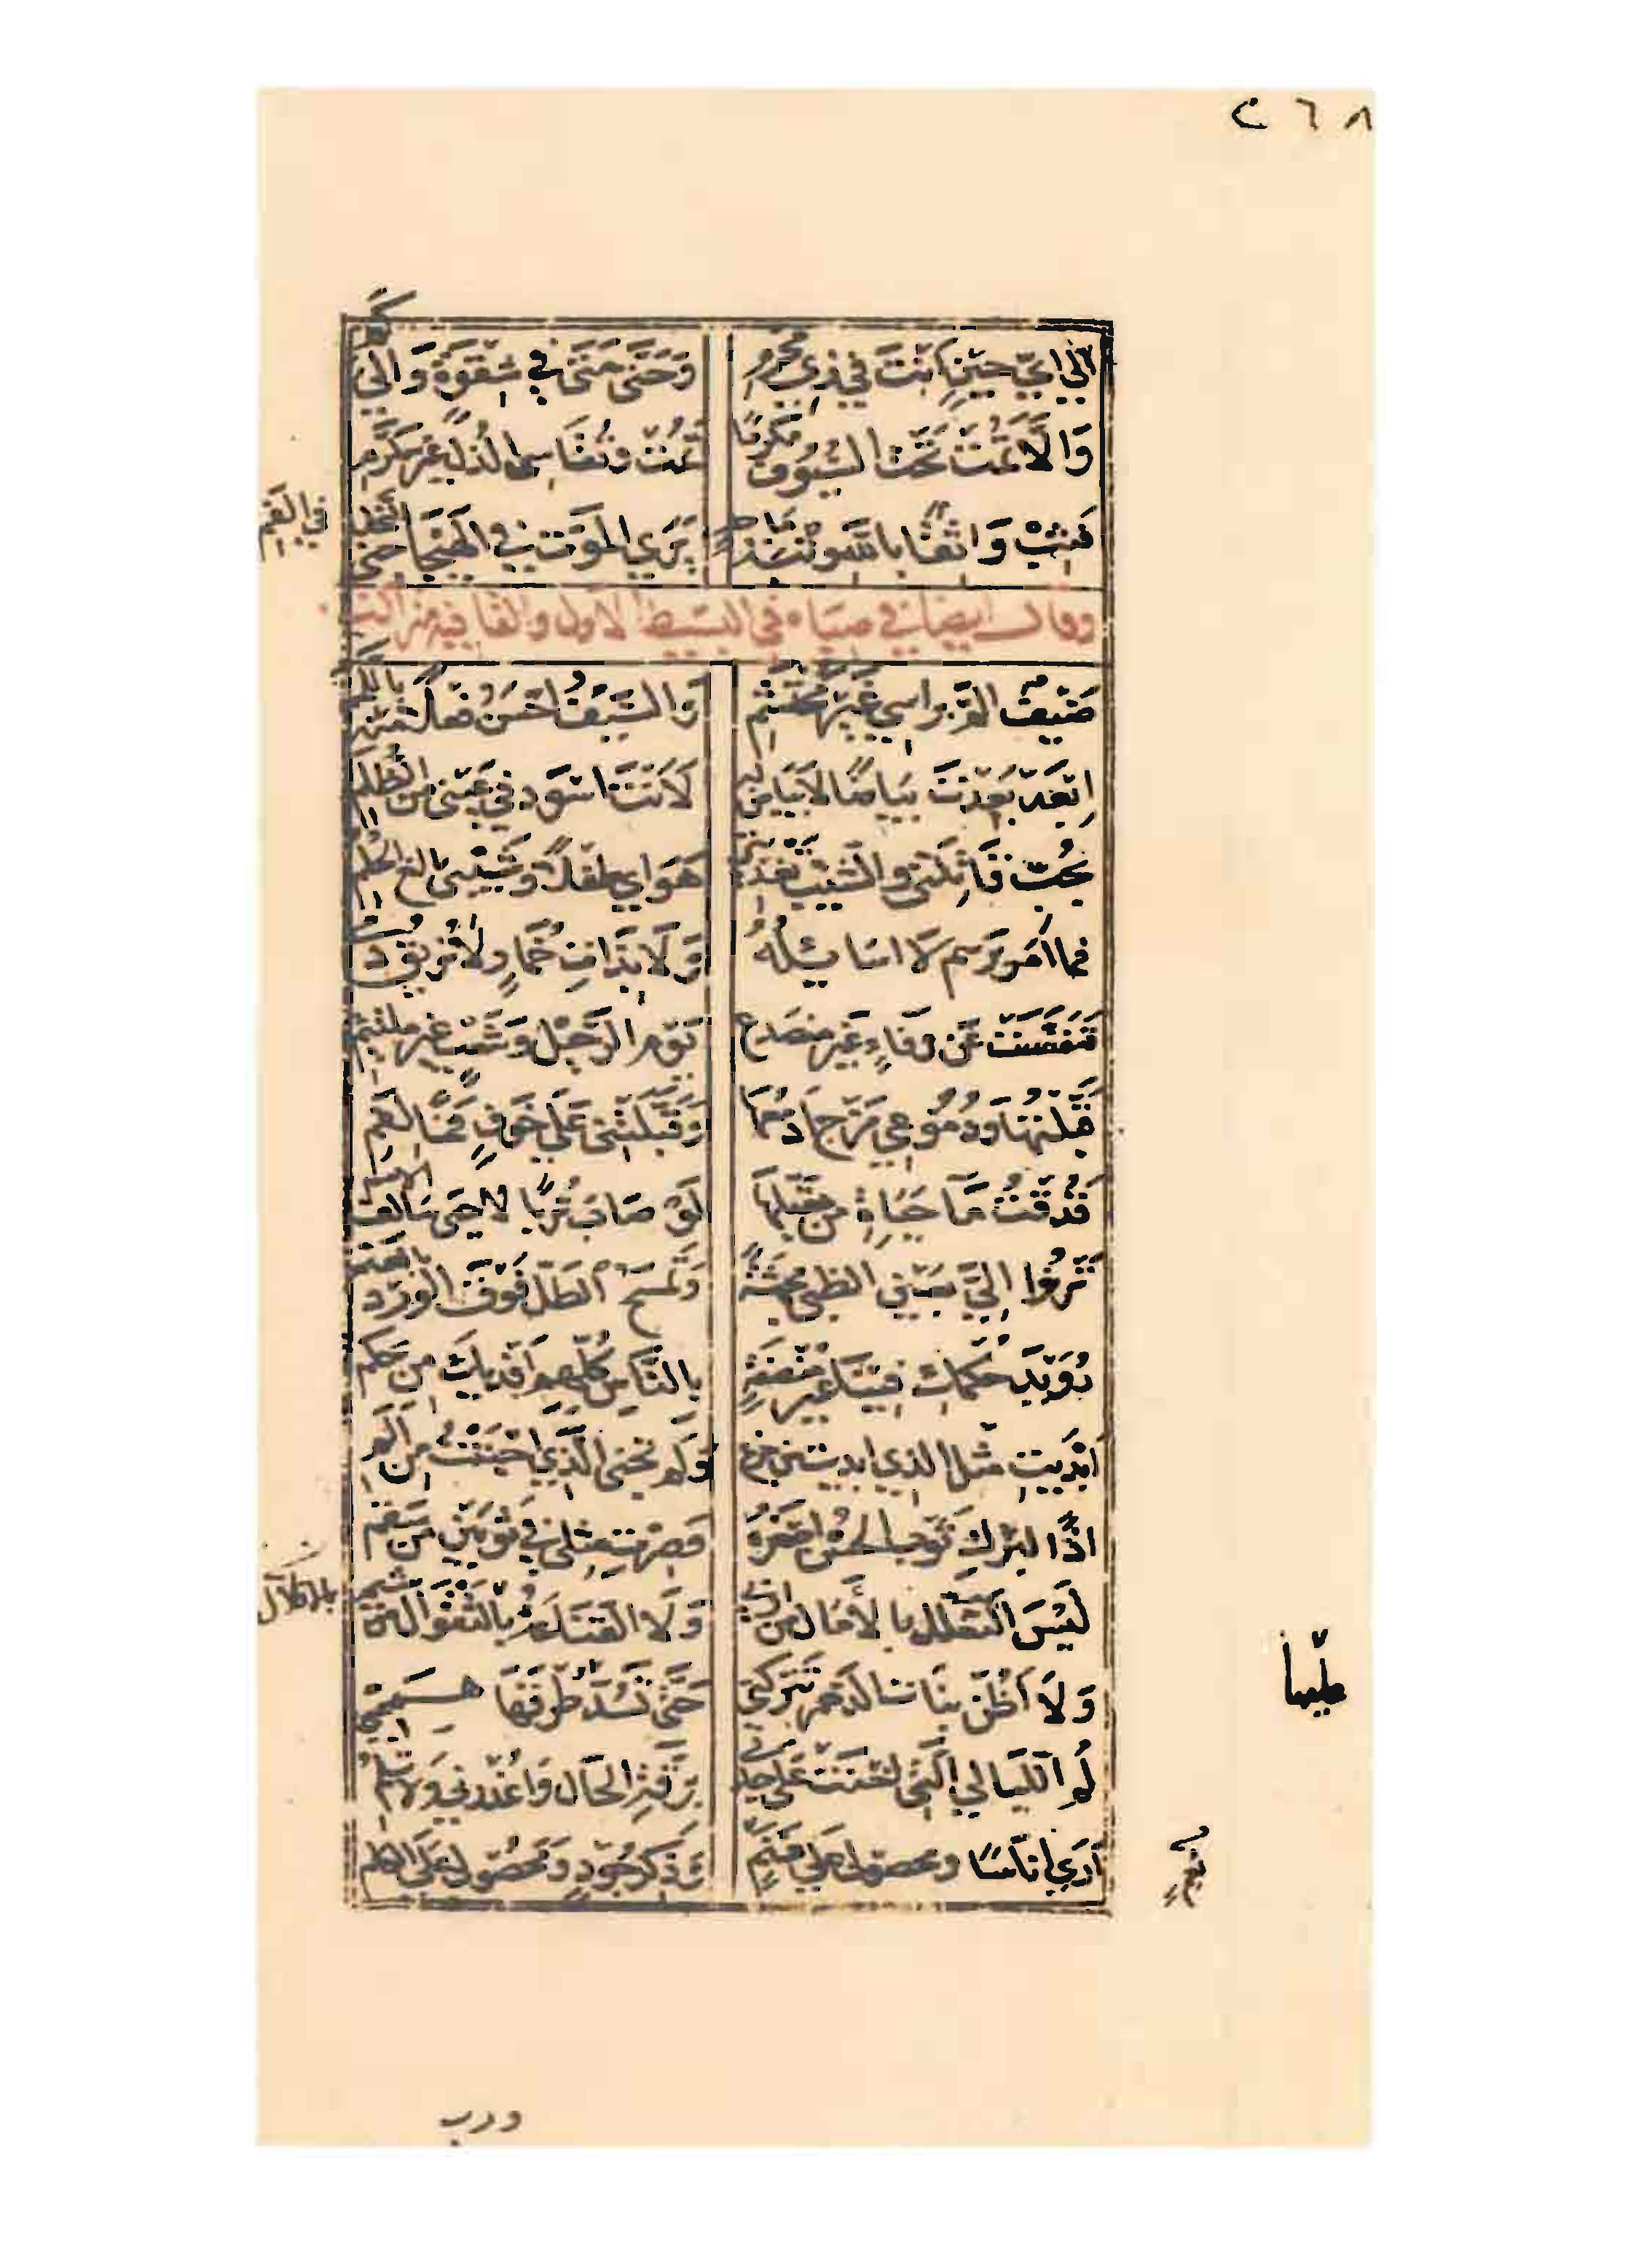 ٢٦٨
الي اي حين انت في زي محرم وحتى متى في شقوة والى كم
والا تمت تحت السيوف مكرما تمت وتقاسي الذل غير مكرم
فثب واثقا بالله وثبة ماجد يرى الموت في الهيجا جنى النحل في الفم
وقال ايضا في صباه في البسيط الاول والقافية من
ضيف الم براسي غير محتشم والسيف احسن فعلا منه باللمم
ابعد بعدت بياضا لا بياض له لانت اسود في عيني من الظلم
بحب قاتلتي والشيب تغذيتي هواي طفلا وشيبي بالغ الحلم
فما امر برسم لا اسايله ولا بذات خمار لا تريق دمي
تنفست عن وفاء غير منصدع يوم الرحيل وشعب غير ملتيم
قبلتها ودموعي مزج ادمعها وقبلتني على خوف فما لفم
قد ذقت ماء حياة من مقبلها لو صاب تربا لاحيى سالف الامم
ترنوا الي بعين الظبي مجهشة وتمسح الطل فوق الورد بالعنم
رويد حكمك فينا غير منصفة بالناس كلهم افديك من حكم
ابديت مثل الذي ابديت من جزع ولم تجني الذي اجننت من الم
اذا لبزك ثوب الحسن اصغره وصرت مثلي في ثوبين من سقم
ليس التعلل بالامال من اربي ولا القناعة بالاقلال من شيمي
ولا اظن بنات الدهر تتركني حتى تسد طرقها هممي
لم الليالي التي اخنت على جدتي برقة الحال واعذرني ولا تلم
ارى اناسا ومحصولي على غنم وذكر جود ومحصولي على الكلم
طيبا
ورب